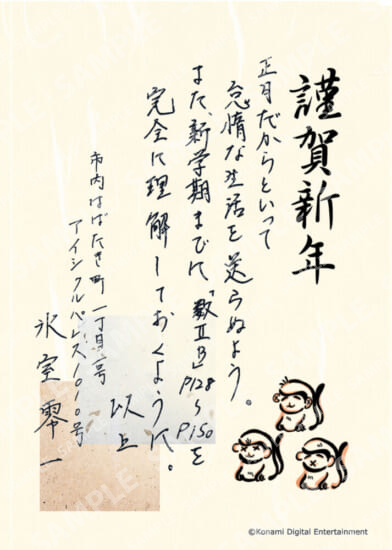 謹賀新年
正月だからといって
怠惰な生活を送らぬよう。
また、新学期までに、「数ⅡB」P128〜P150を
完全に理解しておくように。
以上
市内はばたき町一丁目一号
アイシクルパレス1010号
氷室零一
SAMPLE
©Konami Digital Entertainment